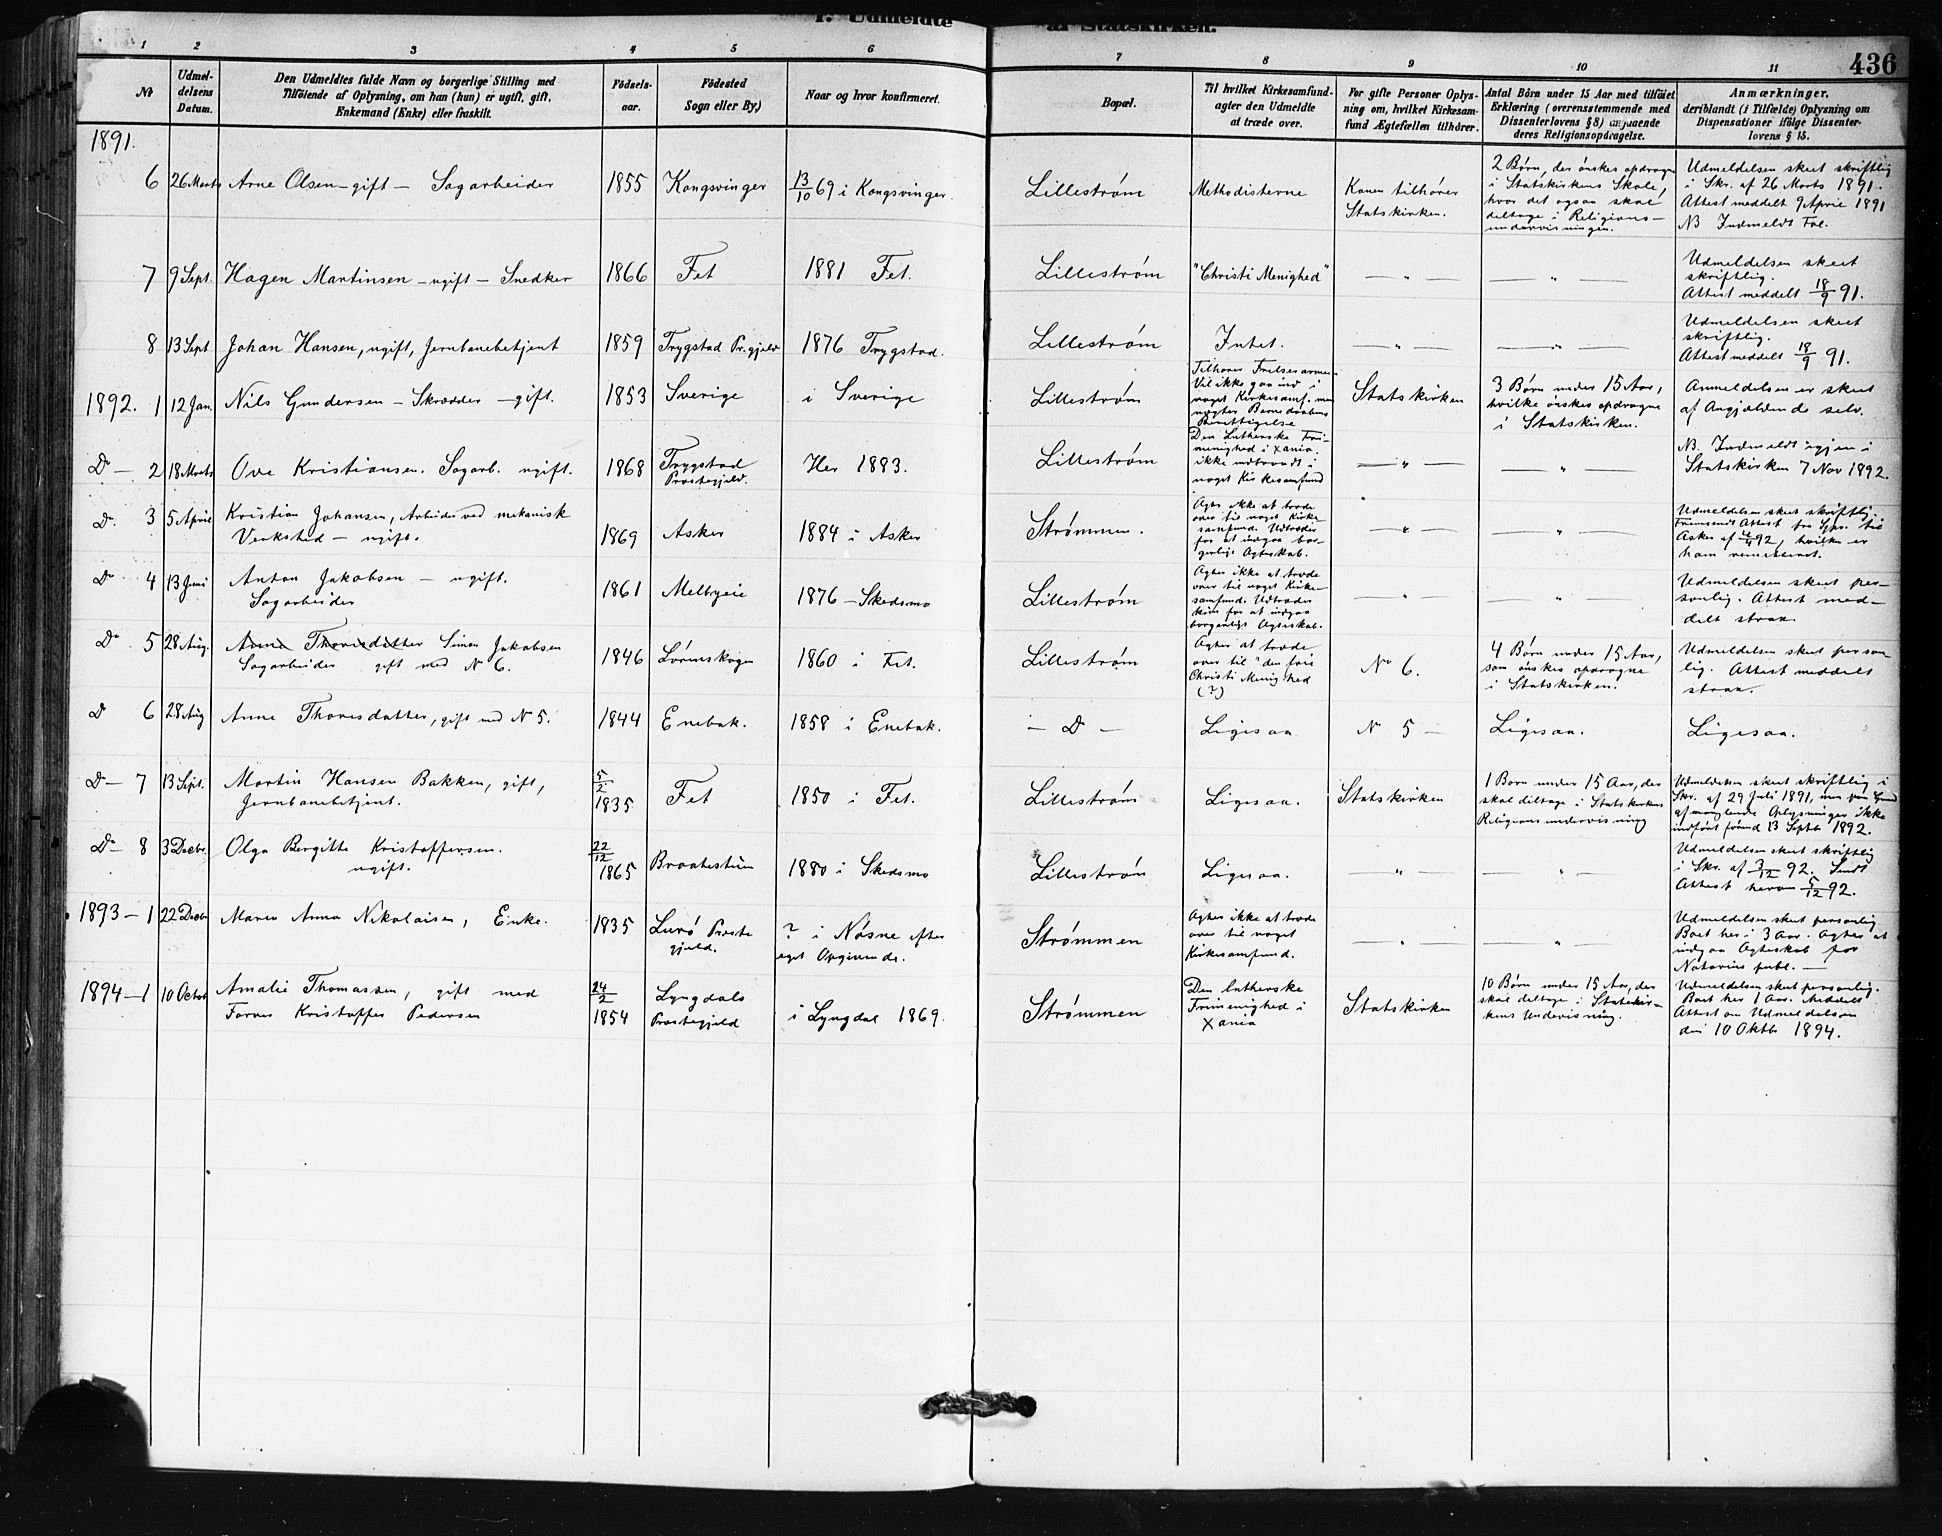 F. Udmeldte af Statskirken.
436
1 2 3 4 5 6 7 8 9 10 11
No
Udmel-
delsens
Datum.
Den Udmeldtes fulde Navn og borgerlige Stilling med
Tilföiende af Oplysning, om han (hun) er ugift, gift,
Enkemand (Enke) eller fraskilt.
Födsels-
aar.
Födested
Sogn eller By.)
Naar og hvor konfirmeret.
Bopæl.
Til hvilket Kirkesamfund
agter den Udmeldte
at træde over.
For gifte Personer Oplys-
ning om, hvilket Kirkesam-
fund Ægtefællen tilhörer.
Antal Börn under 15 Aar med tilföiet
Erklæring (overensstemmende med
Dissenterlovens § 8) angaaende
deres Religionsopdragelse.
Anmærkninger,
deriblandt (i Tilfælde) Oplysning om
Dispensationer ifölge Dissenter-
lovens § 15.
1891.
6 26 Marts Arne Olsen - gift - Sagarbeider 1855 Kongsvinger 13/10 69 i Kongsvinger. Lillestrøm Methodisterne
Konen tilhører
Statskirken.
2 Børn, der ønskes opdragne
i Statskirkens Skole,
hvor det ogsaa skal
deltage i Religions-
undervisningen.
Udmeldelsen skeet skriftlig
i Skr. af 26 Marts 1891.
Attest meddelt 9 April 1891
NB Indmeldt Fol.
7 9 Sept. Hagen Martinsen - ugift - Snedker 1866 Fet 1881 Fet. Lillestrøm "Christi Menighed" — " — — " —
Udmeldelsen skeet
skriftlig.
Attest meddelt 18/9 91.
8 13 Sept Johan Hansen, ugift, Jernbanebetjent 1859 Trygstad Pr.gjeld 1876 Trygstad. Lillestrøm Intet. — " — — " —
Udmeldelsen skeet
skriftlig.
Attest meddelt 18/9 91.
1892. 1 12 Jan. Nils Gundersen - Skrædder - gift. 1853 Sverige i Sverige Lillestrøm
Tilhører Frelsesarmeen
Vil ikke gaa ind i
noget Kirkesamf. men
nægter Barnedaabens
Berettigelse
Statskirken
3 Børn under 15 Aar,
hvilke ønskes opdragne
i Statskirken.
Anmeldelsen er skeet
af Angjældende selv.
Do — 2 18 Marts Ove Kristiansen. Sagarb. ugift. 1868 Trygstad
Præstegjeld.
Her 1883. Lillestrøm
Den Lutherske Fri-
menighed i Xania.
ikke indtraadt i
noget Kirkesamfund
— " — — " —
NB. Indmeldt igjen i
Statskirken 7 Nov 1892.
Do. 3 5 April Kristian Johansen, Arbeider ved mekanisk
Verksted - ugift.
1869 Asker 1884 i Asker Strømmen.
Agter ikke at træde
over til noget Kirke-
samfund. Udtræder
for at indgaa bor-
gerligt Ægteskab.
— " — — " —
Udmeldelsen skeet skriftlig.
Fremsendt Attest fra Spr. til
Asker af 92, hvilken er
ham remitteret.
Do 4 13 Juni Anton Jakobsen - ugift.
Sagarbeider
1861 Melbyeie 1876 - Skedsmo Lillestrøm
Agter ikke at træde
over til noget Kirke-
samfund. Udtræder
kun for at indgaa
borgerligt Ægteskab.
— " — — " —
Udmeldelsen skeet per-
sonlig. Attest med-
delt strax.
Do 5 28 Aug. Anne Thorisdatter Simen Jakobsen
Sagarbeider gift med No 6.
1846 Lörenskogen 1860 i Fet. Lillestrøm
Agter at træde
over til "den frie
Christi Menighed
(?)
No 6.
4 Børn under 15 Aar,
som ønskes opdragne
i Statskirken.
Udmeldelsen skeet person-
lig. Attest meddelt
strax.
D 6 28 Aug Anne Thoresdatter, gift med No 5. 1844 Enebak. 1858 i Enebak. — D — Ligesaa No 5 — Ligesaa. Ligesaa.
D — 7 13 Sept. Martin Hansen Bakken, gift,
Jernbanebetjent.
5/2
1835
Fet 1850 i Fet. Lillestrøm Ligesaa. Statskirken
1 Barn under 15 Aar, der
skal deltage i Statskirkens
Religionsundervisning
Udmeldelsen skeet skriftlig i
Skr. af 29 Juli 1891, men paa Grund
af manglende Oplysninger ikke
indført førend 13 Septb 1892.
Do — 8 3 Decbr. Olga Bergitte Kristoffersen.
ugift.
22/12
1865
Braatestuen 1880 i Skedsmo Lillestrøm Ligesaa. — " — — " —
Udmeldelsen skeet skriftlig
i Skr. af 3/12 92. Sendt
Attest herom 5/12 92.
1893 — 1 22 Decbr Maren Anna Nikolaisen, Enke. 1835 Lurö Præste
gjeld.
? i Næsne efter
eget Opgivende.
Strømmen
Agter ikke at træde
over til noget
Kirkesamfund.
— " — — " —
Udmeldelsen skeet personlig
Boet her i 3 Aar. Agter at
indgaa Ægteskab for
Notarius publ. —
1894 — 1 10 Octob Amalie Thomassen, gift med
Farver Kristoffer Pedersen
24/2
1854
Lyngdals
Præstegjeld
i Lyngdal 1869. Strømmen
Den lutherske
Frimenighed i
Xania
Statskirken
10 Børn under 15 Aar, der
skal deltage i Statskir-
kens Undervisning.
Udmeldelsen skeet personlig.
Boet her 1 Aar. Meddelt
Attest om Udmeldelsen
den 10 Oktb 1894.